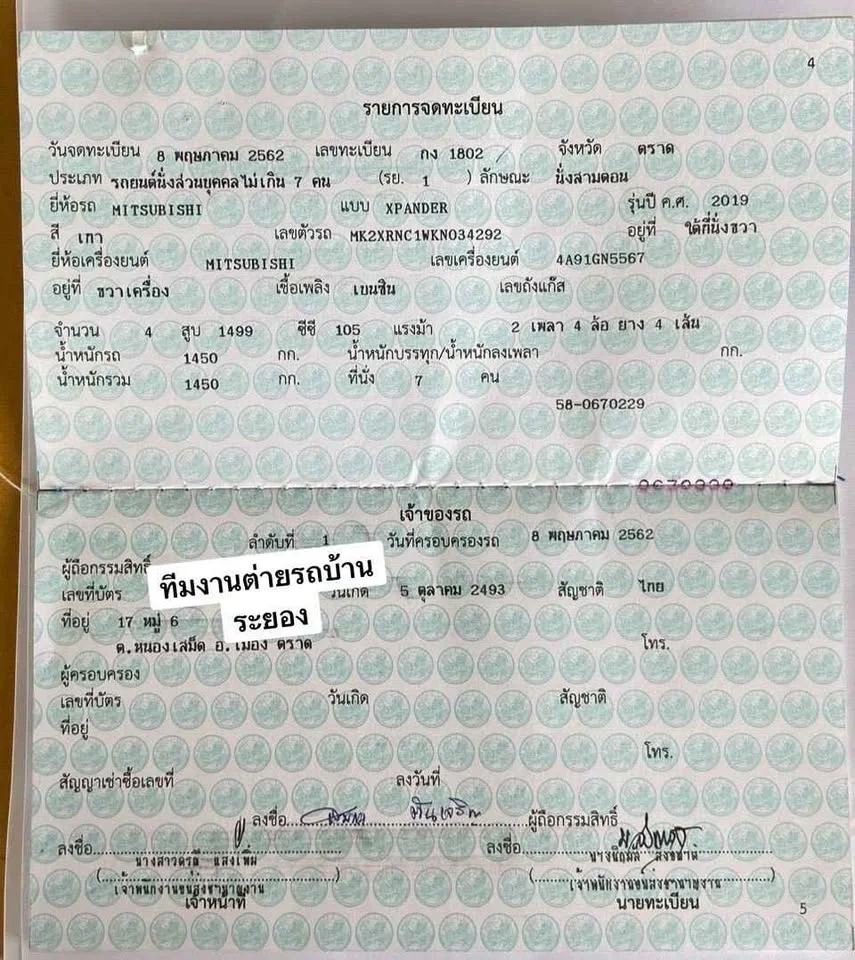 4
รายการจดทะเบียน
วันจดทะเบียน 8 พฤษภาคม 2562 เลขทะเบียน กง 1802 จังหวัด ตราด
ประเภท รถยนต์นั่งส่วนบุคคลไม่เกิน 7 คน (รย. 1 ) ลักษณะ นั่งสามตอน
ยี่ห้อรถ MITSUBISHI แบบ XPANDER รุ่นปี ค.ศ. 2019
สี เทา เลขตัวรถ MK2XRNC1WKN034292 อยู่ที่ ใต้ที่นั่งขวา
ยี่ห้อเครื่องยนต์ MITSUBISHI เลขเครื่องยนต์ 4A91GN5567
อยู่ที่ ขวาเครื่อง เชื้อเพลิง เบนซิน เลขถังแก๊ส
จำนวน 4 สูบ 1499 ซีซี 105 แรงม้า 2 เพลา 4 ล้อ ยาง 4 เส้น
น้ำหนักรถ 1450 กก. น้ำหนักบรรทุก/น้ำหนักลงเพลา กก.
น้ำหนักรวม 1450 กก. ที่นั่ง 7 คน
58-0670229
เจ้าของรถ
ลำดับที่ 1 วันที่ครอบครองรถ 8 พฤษภาคม 2562
ผู้ถือกรรมสิทธิ์
ทีมงานต่ายรถบ้าน
ระยอง
เลขที่บัตร วันเกิด 5 ตุลาคม 2493 สัญชาติ ไทย
ที่อยู่ 17 หมู่ 6
ต.หนองเสม็ด อ.เมือง ตราด โทร.
ผู้ครอบครอง
เลขที่บัตร วันเกิด สัญชาติ
ที่อยู่
โทร.
สัญญาเช่าซื้อเลขที่ ลงวันที่
ลงชื่อ ผู้ถือกรรมสิทธิ์
ลงชื่อ ลงชื่อ
นางสาวดรุณี แสงเพิ่ม
เจ้าพนักงานขนส่งชำนาญงาน เจ้าพนักงานขนส่งชำนาญงาน
เจ้าหน้าที่ นายทะเบียน
5